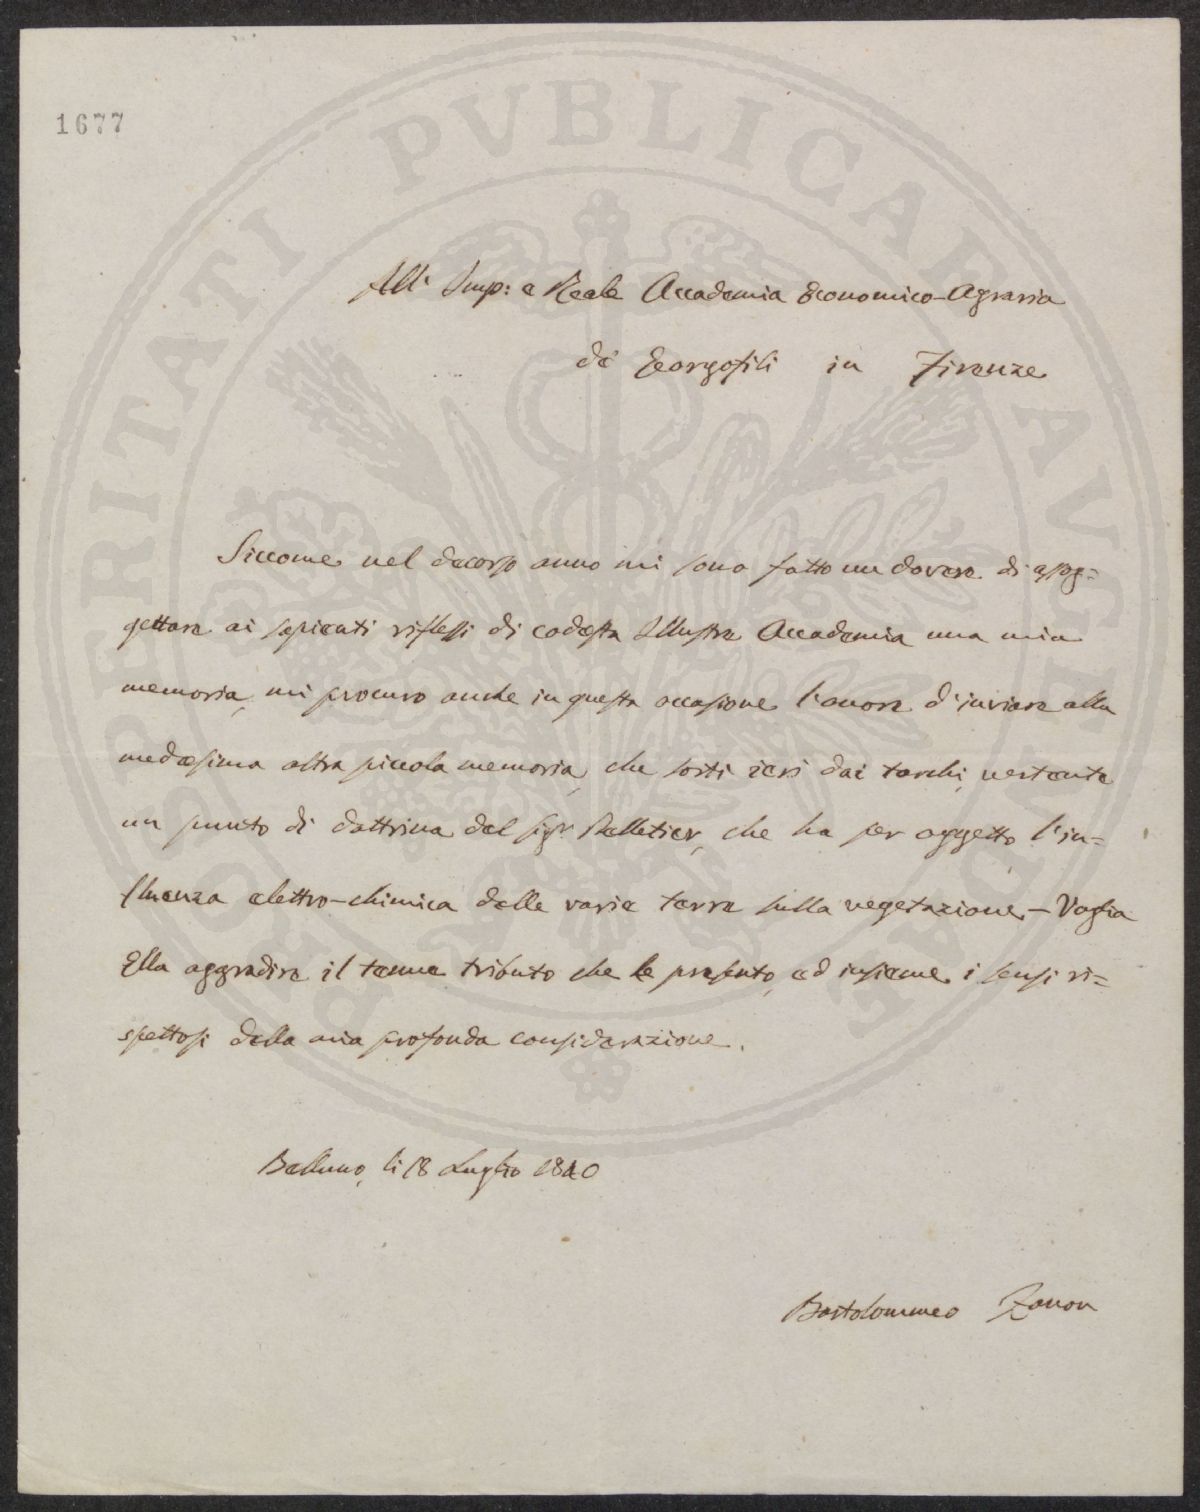 1677
PROSPERITATI PVBLICAE AVGENDAE
All' Imp: e Reale Accademia Economico-Agraria
de' Georgofili in Firenze
Siccome nel decorso anno mi sono fatto un dovere di assog=
gettare ai sapienti riflessi di codesta Illustre Accademia una mia
memoria, mi procuro anche in questa occasione l'onore d'inviare alla
medesima altra piccola memoria, che sortì ieri dai torchi, vertente
un punto di dottrina del sigr. Pelletier, che ha per oggetto l'in=
fluenza elettro-chimica delle varie terre sulla vegetazione. - Voglia
Ella aggradire il tenue tributo che le presento, ed insieme i sensi ri=
spettosi della mia profonda considerazione.
Belluno, li 18 Luglio 1840
Bartolommeo Zanon